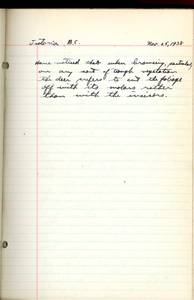 Victoria B.C. Nov. 25, 1938
Have noticed that when browsing, particularly
on any sort of tough vegetation
the deer prefers to cut the foliage
off with its molars rather
than with the incisors.